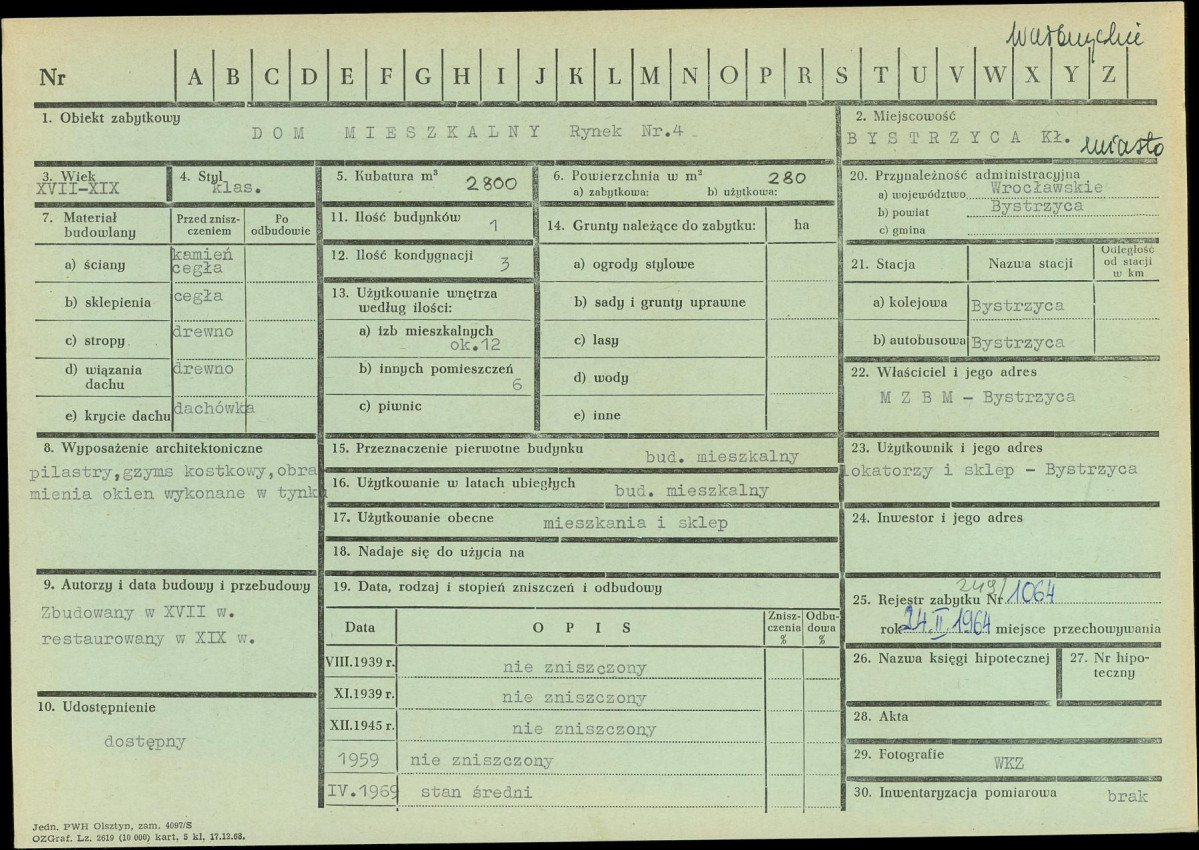 wałbrzyskie
Nr A B C D E F G H I J K L M N O P R S T U V W X Y Z
1. Obiekt zabytkowy
DOM MIESZKALNY Rynek Nr.4
2. Miejscowość
BYSTRZYCA KŁ. miasto
3. Wiek
XVII-XIX
4. Styl
klas.
5. Kubatura m³ 2800
6. Powierzchnia w m² 280
a) zabytkowa: b) użytkowa:
7. Materiał budowlany
Przed zniszczeniem
Po odbudowie
a) ściany kamień cegła
b) sklepienia cegła
c) stropy drewno
d) wiązania dachu drewno
e) krycie dachu dachówka
8. Wyposażenie architektoniczne
pilastry,gzyms kostkowy,obra
mienia okien wykonane w tynku
9. Autorzy i data budowy i przebudowy
Zbudowany w XVII w.
restaurowany w XIX w.
10. Udostępnienie
dostępny
11. Ilość budynków 1
12. Ilość kondygnacji 3
13. Użytkowanie wnętrza według ilości:
a) izb mieszkalnych
ok.12
b) innych pomieszczeń
6
c) piwnic
14. Grunty należące do zabytku: ha
a) ogrody stylowe
b) sady i grunty uprawne
c) lasy
d) wody
e) inne
15. Przeznaczenie pierwotne budynku bud. mieszkalny
16. Użytkowanie w latach ubiegłych bud. mieszkalny
17. Użytkowanie obecne mieszkania i sklep
18. Nadaje się do użycia na
19. Data, rodzaj i stopień zniszczeń i odbudowy
Data OPIS Zniszczenia % Odbudowa %
VIII.1939 r. nie zniszczony
XI.1939 r. nie zniszczony
XII.1945 r. nie zniszczony
1959 nie zniszczony
IV.1969 stan średni
20. Przynależność administracyjna
a) województwo Wrocławskie
b) powiat Bystrzyca
c) gmina
21. Stacja Nazwa stacji Odległość od stacji w km
a) kolejowa Bystrzyca
b) autobusowa Bystrzyca
22. Właściciel i jego adres
MZBM - Bystrzyca
23. Użytkownik i jego adres
lokatorzy i sklep - Bystrzyca
24. Inwestor i jego adres
25. Rejestr zabytku Nr 249/1064
rok 24.II.1964 miejsce przechowywania
26. Nazwa księgi hipotecznej
27. Nr hipoteczny
28. Akta
29. Fotografie WKZ
30. Inwentaryzacja pomiarowa brak
Jedn. PWH Olsztyn, zam. 4097/S
OZGraf. Lz. 2619 (10 000) kart. 5 kl. 17.12.68.